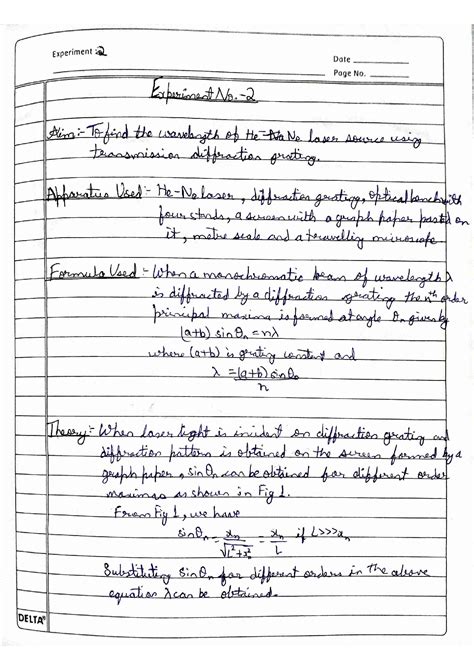 Experiment :2
Date
Page No.
Experiment No.-2
Aim:- To find the wavelength of He-Ne laser source using
transmission diffraction grating.
Apparatus Used:- He-Ne laser, diffraction grating, optical bench with
four stands, a screen with a graph paper pasted on
it, metre scale and a travelling microscope
Formula Used:- When a monochromatic beam of wavelength λ
is diffracted by a diffraction grating the nth order
principal maxima is formed at angle θn given by
(a+b) sinθn = nλ
where (a+b) is grating constant and
λ = (a+b) sinθn
n
Theory:- When laser light is incident on diffraction grating and
diffraction pattern is obtained on the screen formed by a
graph paper, sinθn can be obtained for different order
maximas as shown in Fig 1.
From Fig 1, we have
sinθn = xn/√L²+xn² = xn/L if L>>>xn
Substituting sinθn for different orders in the above
equation λ can be obtained.
DELTA®